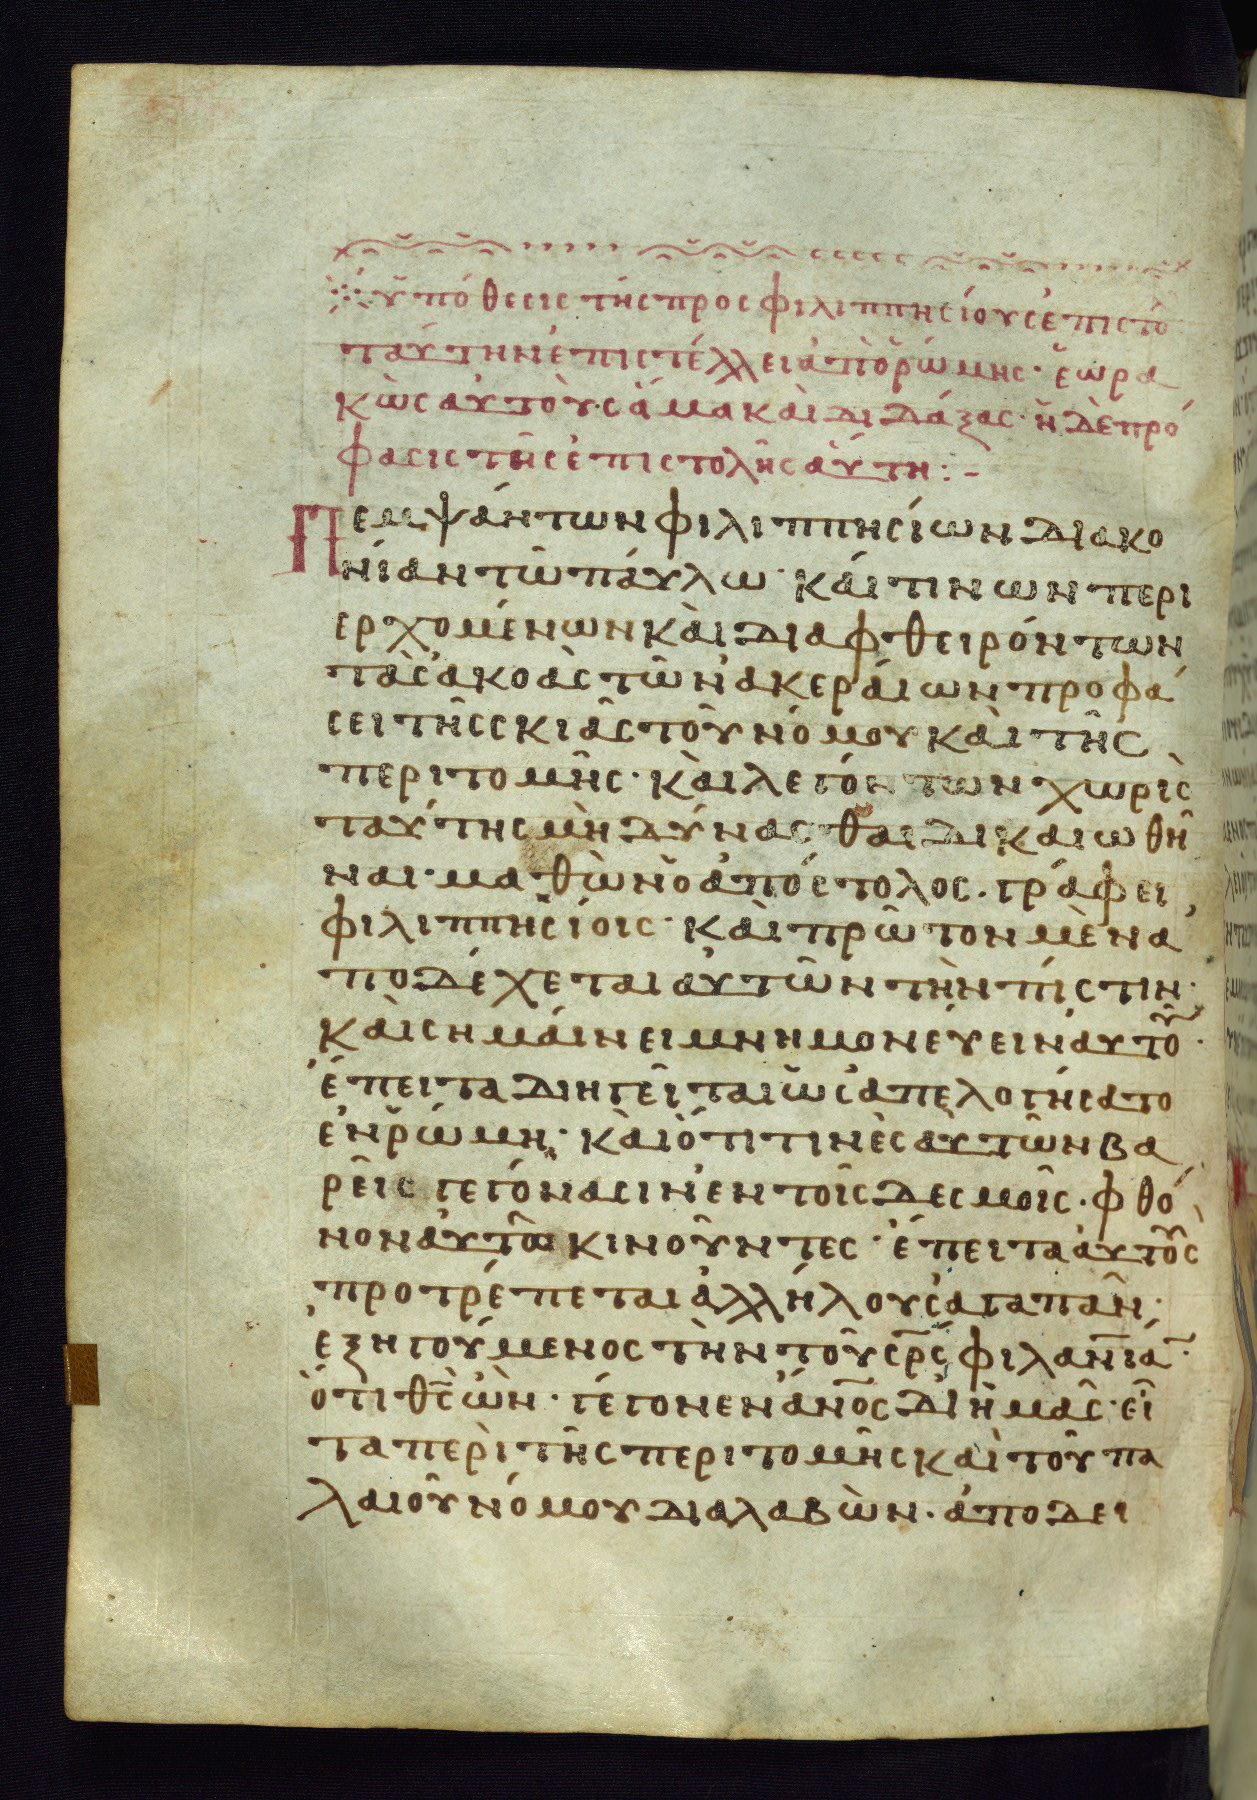 ὑπόθεσις τῆς πρὸς φιλιππησίους ἐπιστο
ταύτην ἐπιστέλλει ἀπὸ ῥώμης· ἑωρα
κὼς αὐτοὺς ἅμα καὶ διδάξας· ἡ δὲ πρό
φασις τῆς ἐπιστολῆς αὕτη:-
Πεμψάντων φιλιππησίων διακο
νίαν τῶ παύλω· καί τινων περι
ερχομένων καὶ διαφθειρόντων
τὰς ἀκοὰς τῶν ἀκεραίων προφά
σει τῆς σκιᾶς τοῦ νόμου καὶ τῆς
περιτομῆς· καὶ λεγόντων χωρὶς
ταύτης μὴ δύνασθαι δικαιωθῆ
ναι· μαθὼν ὁ ἀπόστολος· γράφει
φιλιππησίοις· καὶ πρῶτον μὲν ἀ
ποδέχεται αὐτῶν τὴν πίστιν·
καὶ σημαίνει μνημονεύειν αὐτοῦ·
ἔπειτα διηγεῖται ὡς ἀπελογήσατο
ἐν ῥώμη· καὶ ὅτι τινὲς αὐτῶν βα
ρεῖς γεγόνασιν ἐν τοῖς δεσμοῖς· φθό
νον αὐτῶ κινοῦντες· ἔπειτα αὐτοὺς
προτρέπεται ἀλλήλους ἀγαπᾶν·
ἐξηγούμενος τὴν τοῦ σρς φιλανιαν·
ὅτι θς ὢν· γέγονεν ἄνος δι ἡμᾶς· εἶ
τα περὶ τῆς περιτομῆς καὶ τοῦ πα
λαιοῦ νόμου διαλαβὼν· ἀποδει